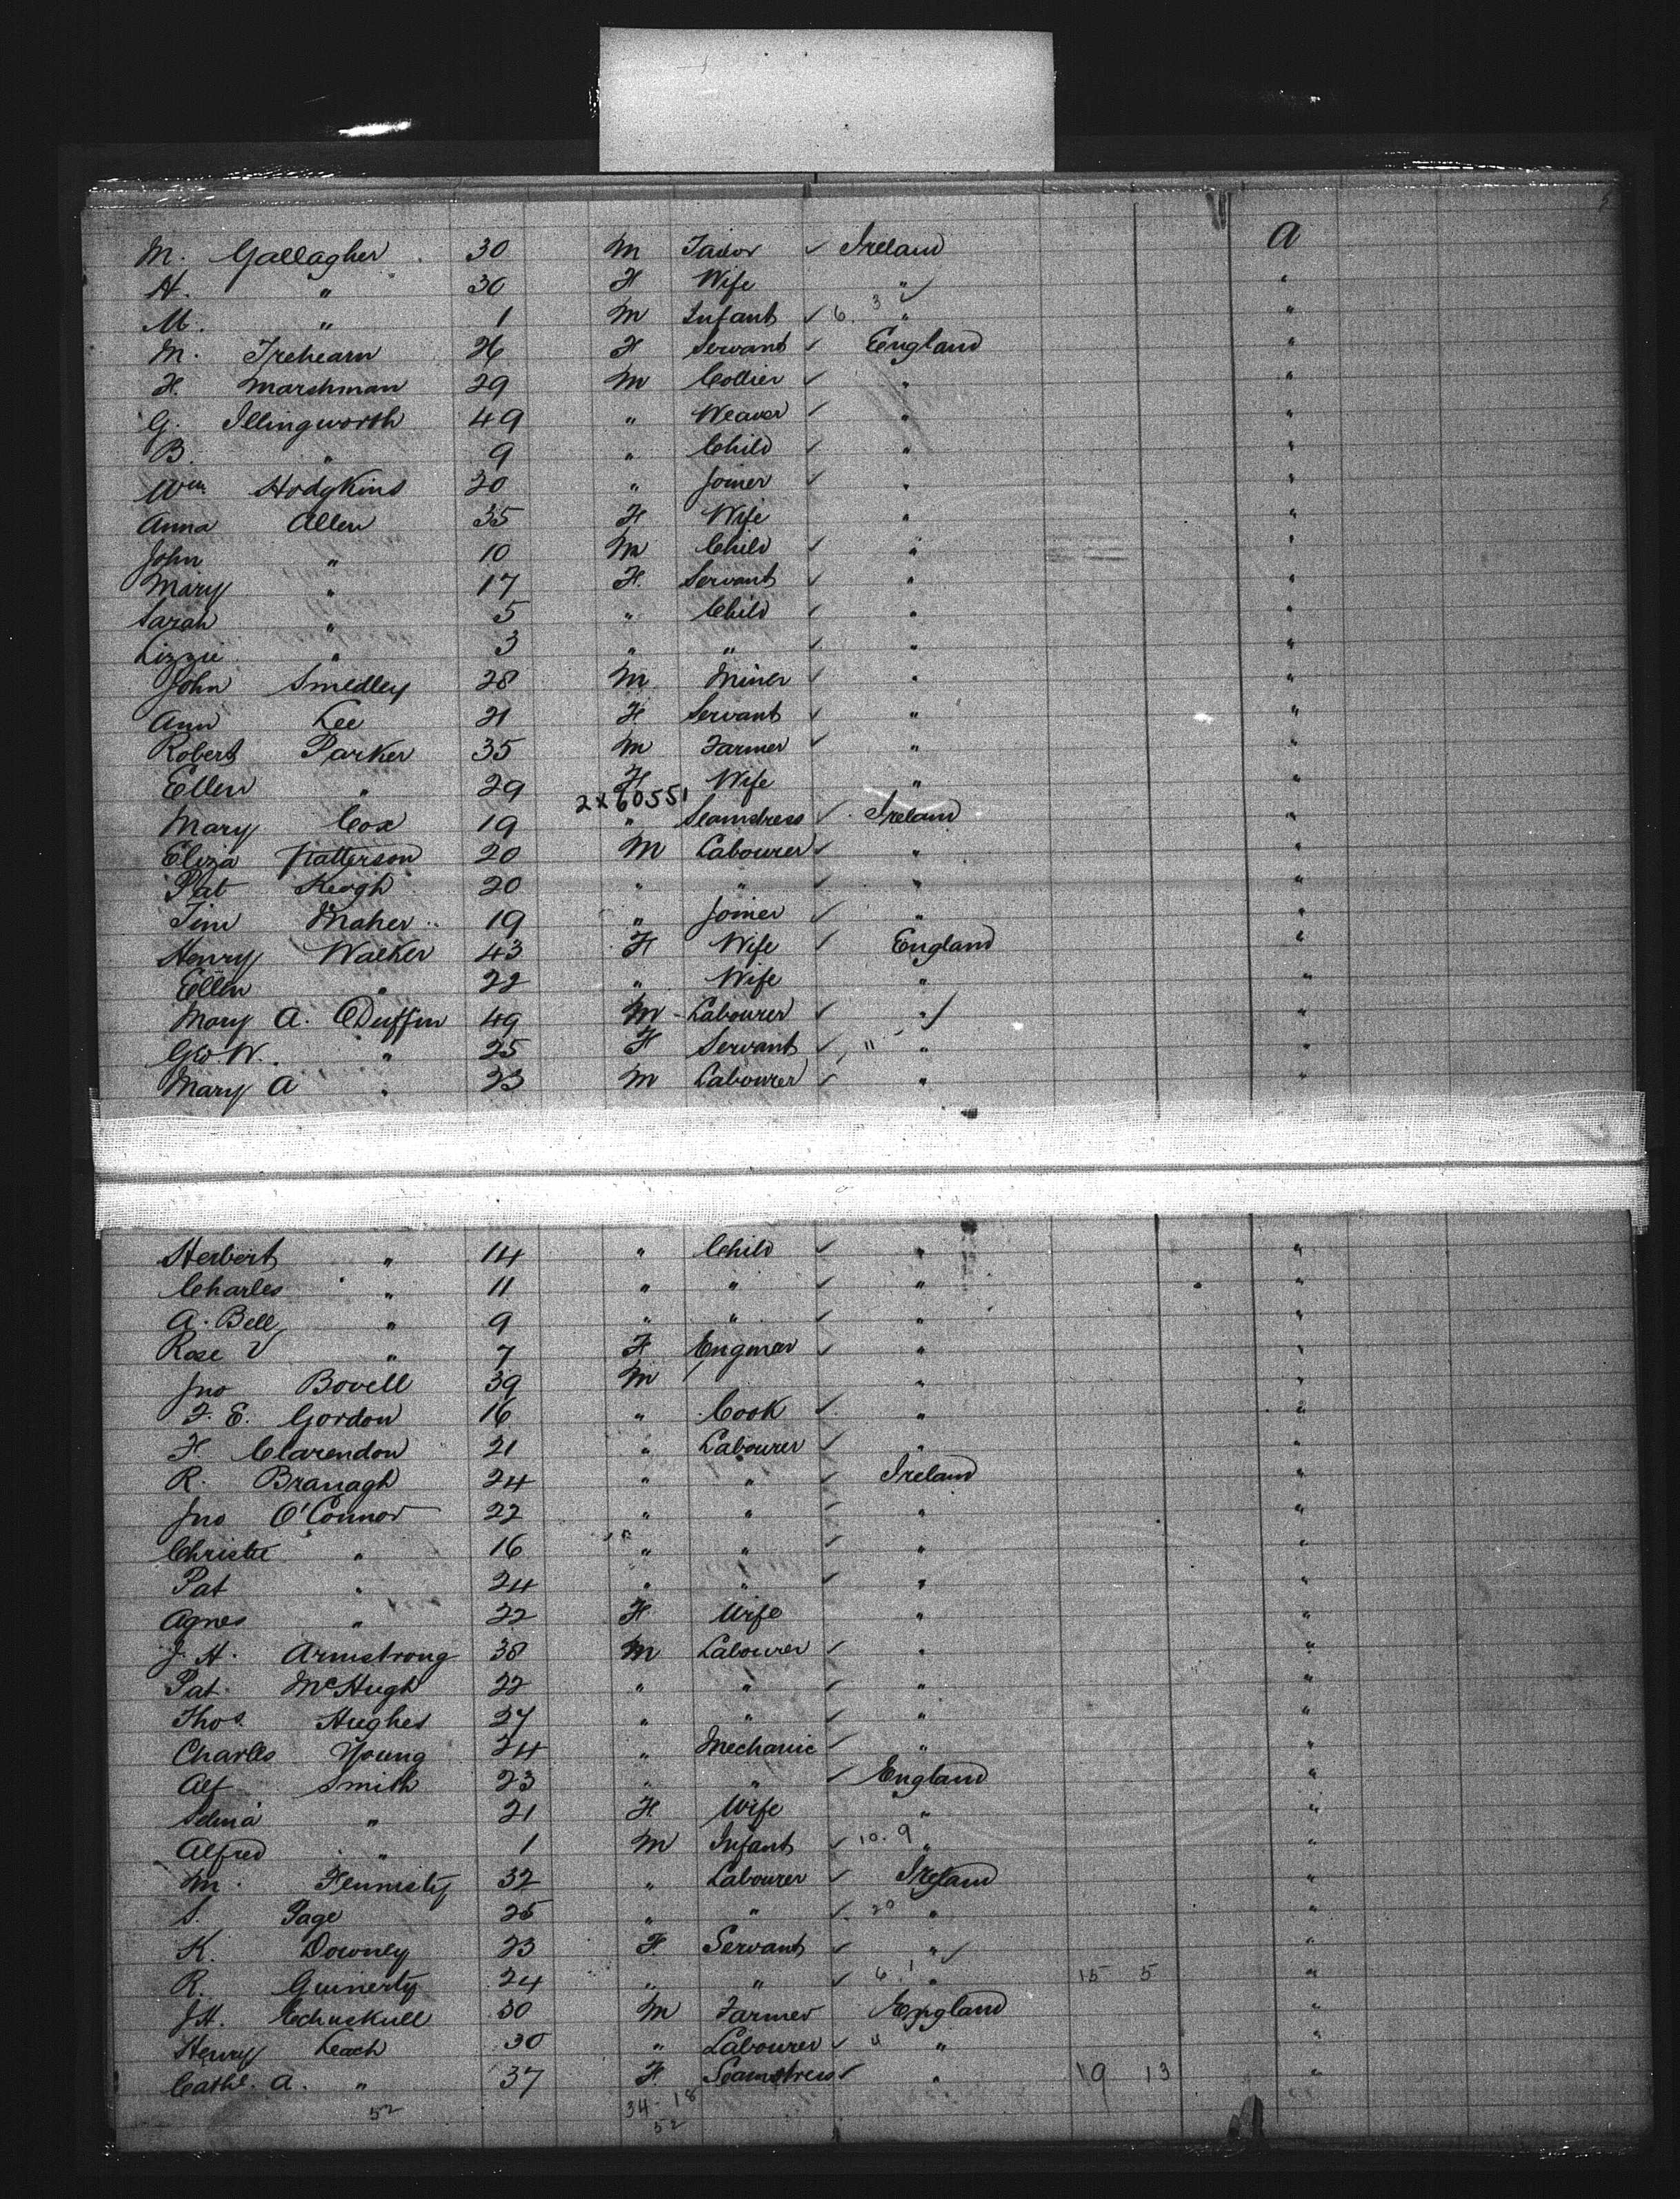 M. Gallagher 30 M Tailor ✓ Ireland a
H. " 30 F Wife " "
M. " 1 M Infant ✓ 6. 3 " "
M. Trehearn 26 F Servant ✓ England "
F. Marshman 29 M Collier ✓ " "
G. Illingworth 49 " Weaver ✓ " "
B. " 9 " Child ✓ " "
Wm Hodgkins 20 " Joiner ✓ " "
Anna Allen 35 F Wife " "
John " 10 M Child ✓ " "
Mary " 17 F. Servant ✓ " "
Sarah " 5 " Child ✓ " "
Lizzie " 3 " " ✓ " "
John Smedley 28 M Miner ✓ " "
Ann Lee 21 F Servant ✓ " "
Robert Parker 35 M Farmer ✓ " "
Ellen " 29 F Wife " "
2x60551
Mary Cox 19 " Seamstress ✓ Ireland "
Eliza Patterson 20 M Labourer ✓ " "
Pat Keogh 20 " " ✓ " "
Tim Maher 19 " Joiner ✓ " "
Henry Walker 43 F Wife ✓ England "
Ellen " 22 " Wife " "
Mary A. Duffin 49 M Labourer ✓ " "
Geo. W. " 25 F Servant ✓ 11 " "
Mary A " 23 M Labourer ✓ " "
Herbert " 14 " Child ✓ " "
Charles " 11 " " ✓ " "
A. Bell " 9 " " ✓ " "
Rose V " 7 F Engineer ✓ " "
Jno Bovell 39 M " "
F. E. Gordon 16 " Cook ✓ " "
F. Clarendon 21 " Labourer ✓ " "
R. Branagh 24 " " ✓ Ireland "
Jno O'Connor 22 " " ✓ " "
Christie " 16 " " ✓ " "
Pat " 24 " " ✓ " "
Agnes " 22 F Wife " "
J. H. Armstrong 38 M Labourer ✓ " "
Pat McHugh 22 " " ✓ " "
Thos. Hughes 27 " " ✓ " "
Charles Young 24 " Mechanic ✓ " "
Alf Smith 23 " " ✓ England "
Selina " 21 F Wife " "
Alfred " 1 M Infant ✓ 10. 9 " "
M. 32 " Labourer ✓ Ireland "
S. Page 25 " " ✓ 20 " "
K. Downey 23 F Servant ✓ " "
R. Guinerty 24 " " ✓ 6. 1 " 15 5 "
J.H. 30 M Farmer England "
Henry Leach 30 " Labourer ✓ 4 " "
Cathe. A. " 37 F Seamstress ✓ " 19 13 "
52 34 - 18
52